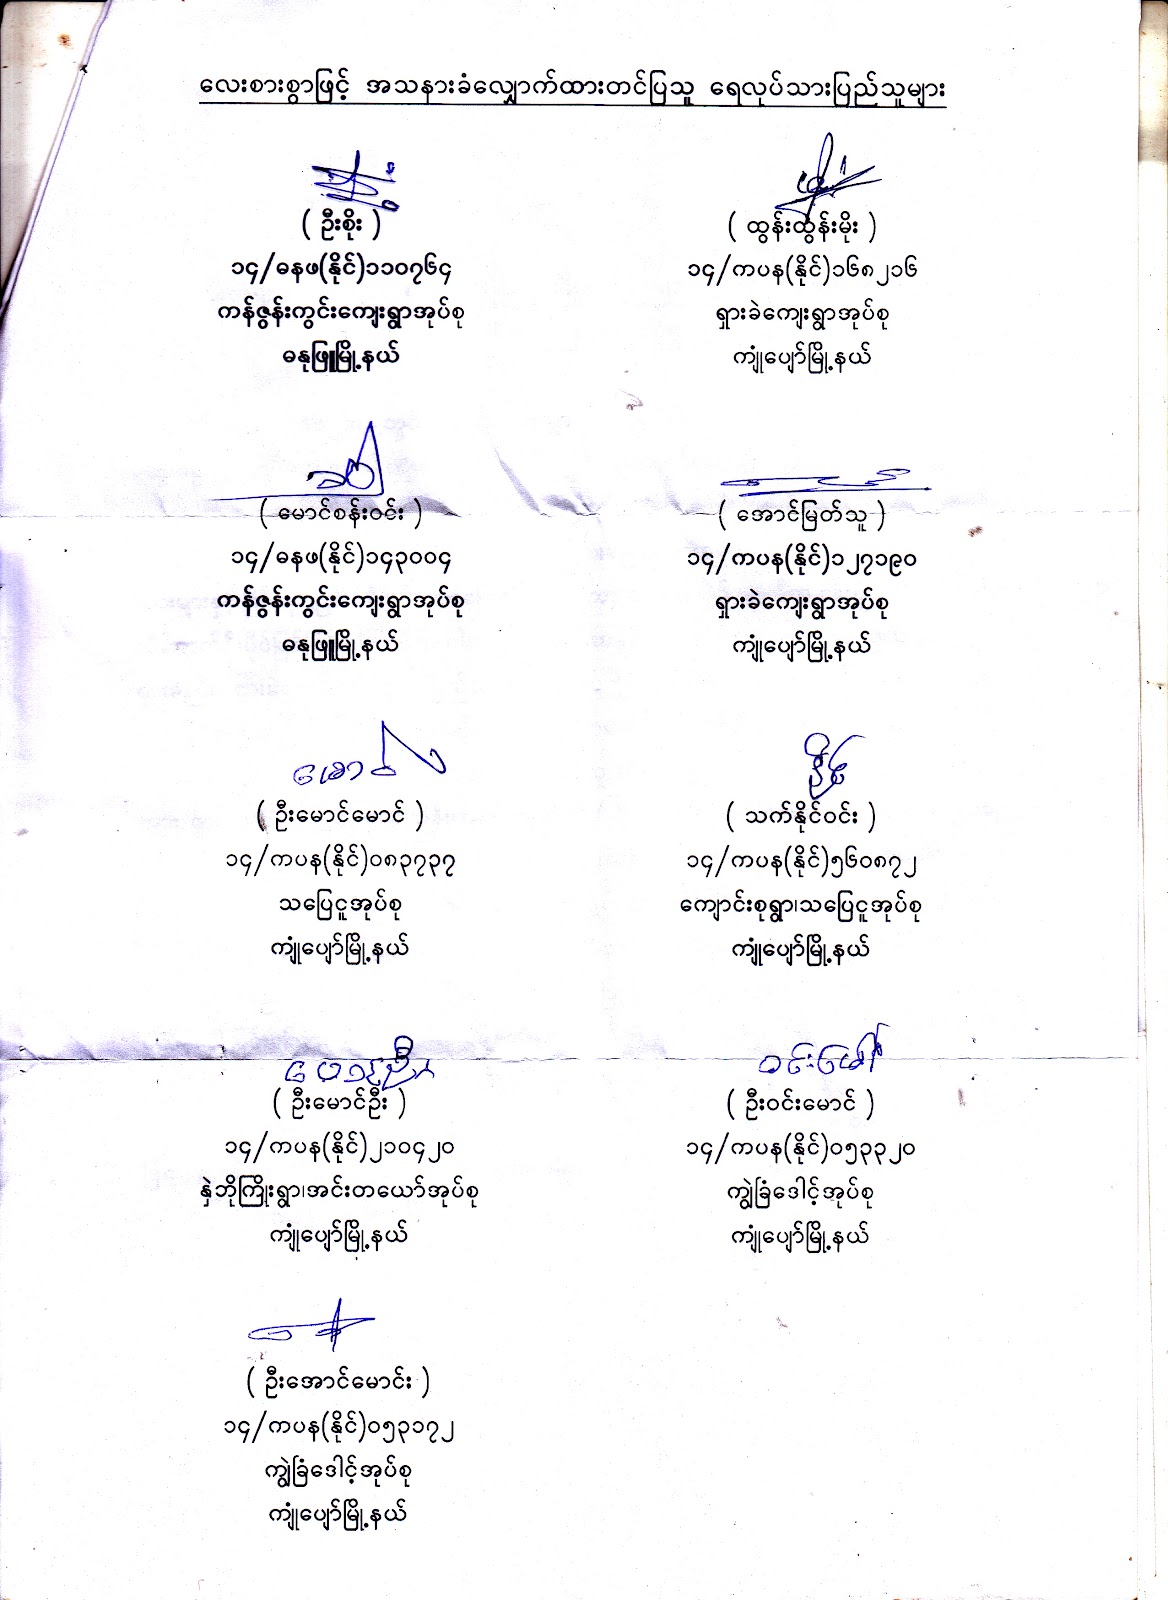 လေးစားစွာဖြင့် အသနားခံလျှောက်ထားတင်ပြသူ ရေလုပ်သားပြည်သူများ
( ဦးစိုး )
၁၄/ဓနဖ(နိုင်)၁၁၀၇၆၄
ကန်ဇွန်းကွင်းကျေးရွာအုပ်စု
ဓနုဖြူမြို့နယ်
( ထွန်းထွန်းမိုး )
၁၄/ကပန(နိုင်)၁၆၈၂၁၆
ရှားခဲကျေးရွာအုပ်စု
ကျုံပျော်မြို့နယ်
( မောင်စန်းဝင်း )
၁၄/ဓနဖ(နိုင်)၁၄၃၀၀၄
ကန်ဇွန်းကွင်းကျေးရွာအုပ်စု
ဓနုဖြူမြို့နယ်
( အောင်မြတ်သူ )
၁၄/ကပန(နိုင်)၁၂၇၁၉၀
ရှားခဲကျေးရွာအုပ်စု
ကျုံပျော်မြို့နယ်
( ဦးမောင်မောင် )
၁၄/ကပန(နိုင်)၀၈၃၇၃၇
သပြေငူအုပ်စု
ကျုံပျော်မြို့နယ်
( သက်နိုင်ဝင်း )
၁၄/ကပန(နိုင်)၅၆၀၈၇၂
ကျောင်းစုရွာ၊သပြေငူအုပ်စု
ကျုံပျော်မြို့နယ်
( ဦးမောင်ဦး )
၁၄/ကပန(နိုင်)၂၁၀၄၂၀
နှဲဘိုကြိုးရွာ၊အင်းတယော်အုပ်စု
ကျုံပျော်မြို့နယ်
( ဦးဝင်းမောင် )
၁၄/ကပန(နိုင်)၀၅၃၃၂၀
ကျွဲခြံဒေါင့်အုပ်စု
ကျုံပျော်မြို့နယ်
( ဦးအောင်မောင်း )
၁၄/ကပန(နိုင်)၀၅၃၁၇၂
ကျွဲခြံဒေါင့်အုပ်စု
ကျုံပျော်မြို့နယ်